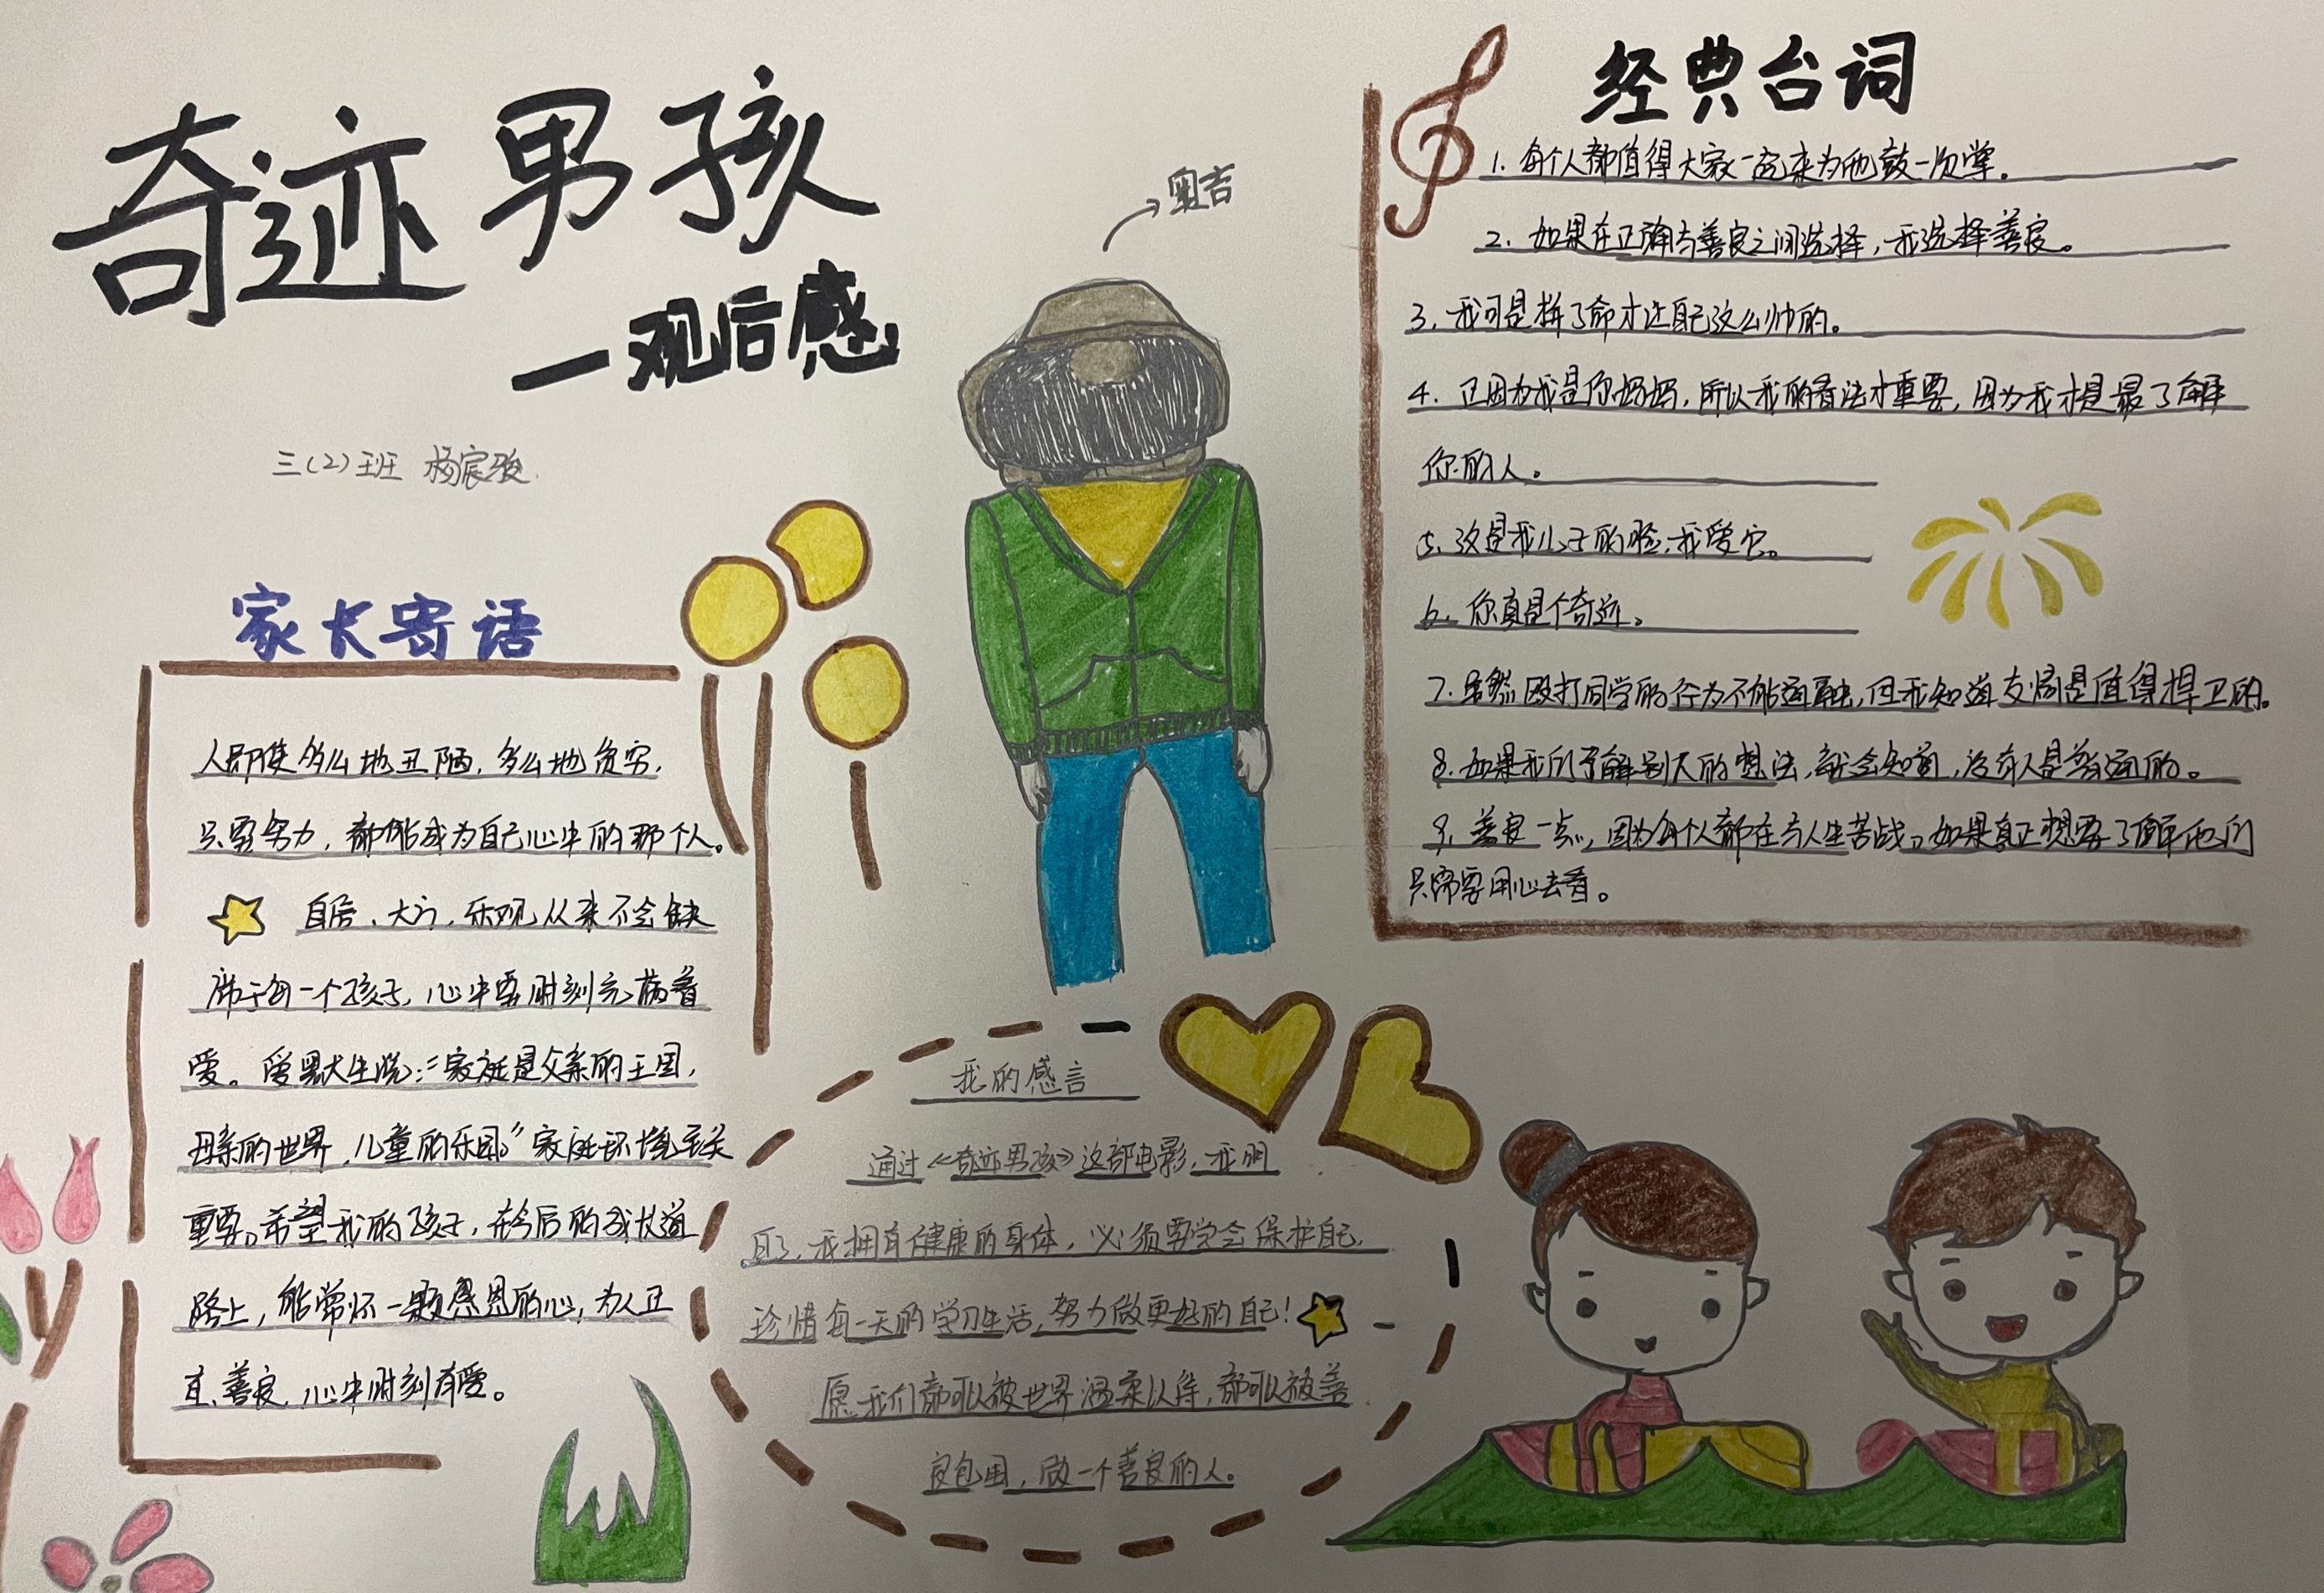 奇迹男孩
一观后感
三(2)班 杨宸骏
奥吉
家长寄语
人即使多么地丑陋,多么地贫穷,
只要努力,都能成为自己心中的那个人。
自信、大方,乐观从来不会缺
席于每一个孩子,心中要时刻充满着
爱。爱默生说:"家庭是父亲的王国,
母亲的世界,儿童的乐园"家庭环境至关
重要。希望我的孩子,在今后的成长道
路上,能常怀一颗感恩的心,为人正
直、善良,心中时刻有爱。
经典台词
1. 每个人都值得大家一起来为他鼓一次掌。
2. 如果在正确与善良之间选择,我选择善良。
3. 我可是拼了命才让自己这么帅的。
4. 正因为我是你妈妈,所以我的看法才重要,因为我才是最了解
你的人。
5. 这是我儿子的脸,我爱它。
6. 你真是个奇迹。
7. 虽然殴打同学的行为不能通融,但我知道友情是值得捍卫的。
8. 如果我们了解别人的想法,就会知道,没有人是普通的。
9. 善良一点,因为每个人都在与人生苦战。如果真正想要了解他们
只需要用心去看。
我的感言
通过《奇迹男孩》这部电影,我明
白了,我拥有健康的身体,必须要学会保护自己,
珍惜每一天的学习生活,努力做更好的自己!
愿我们都可以被世界温柔以待,都可以被善
良包围,做一个善良的人。